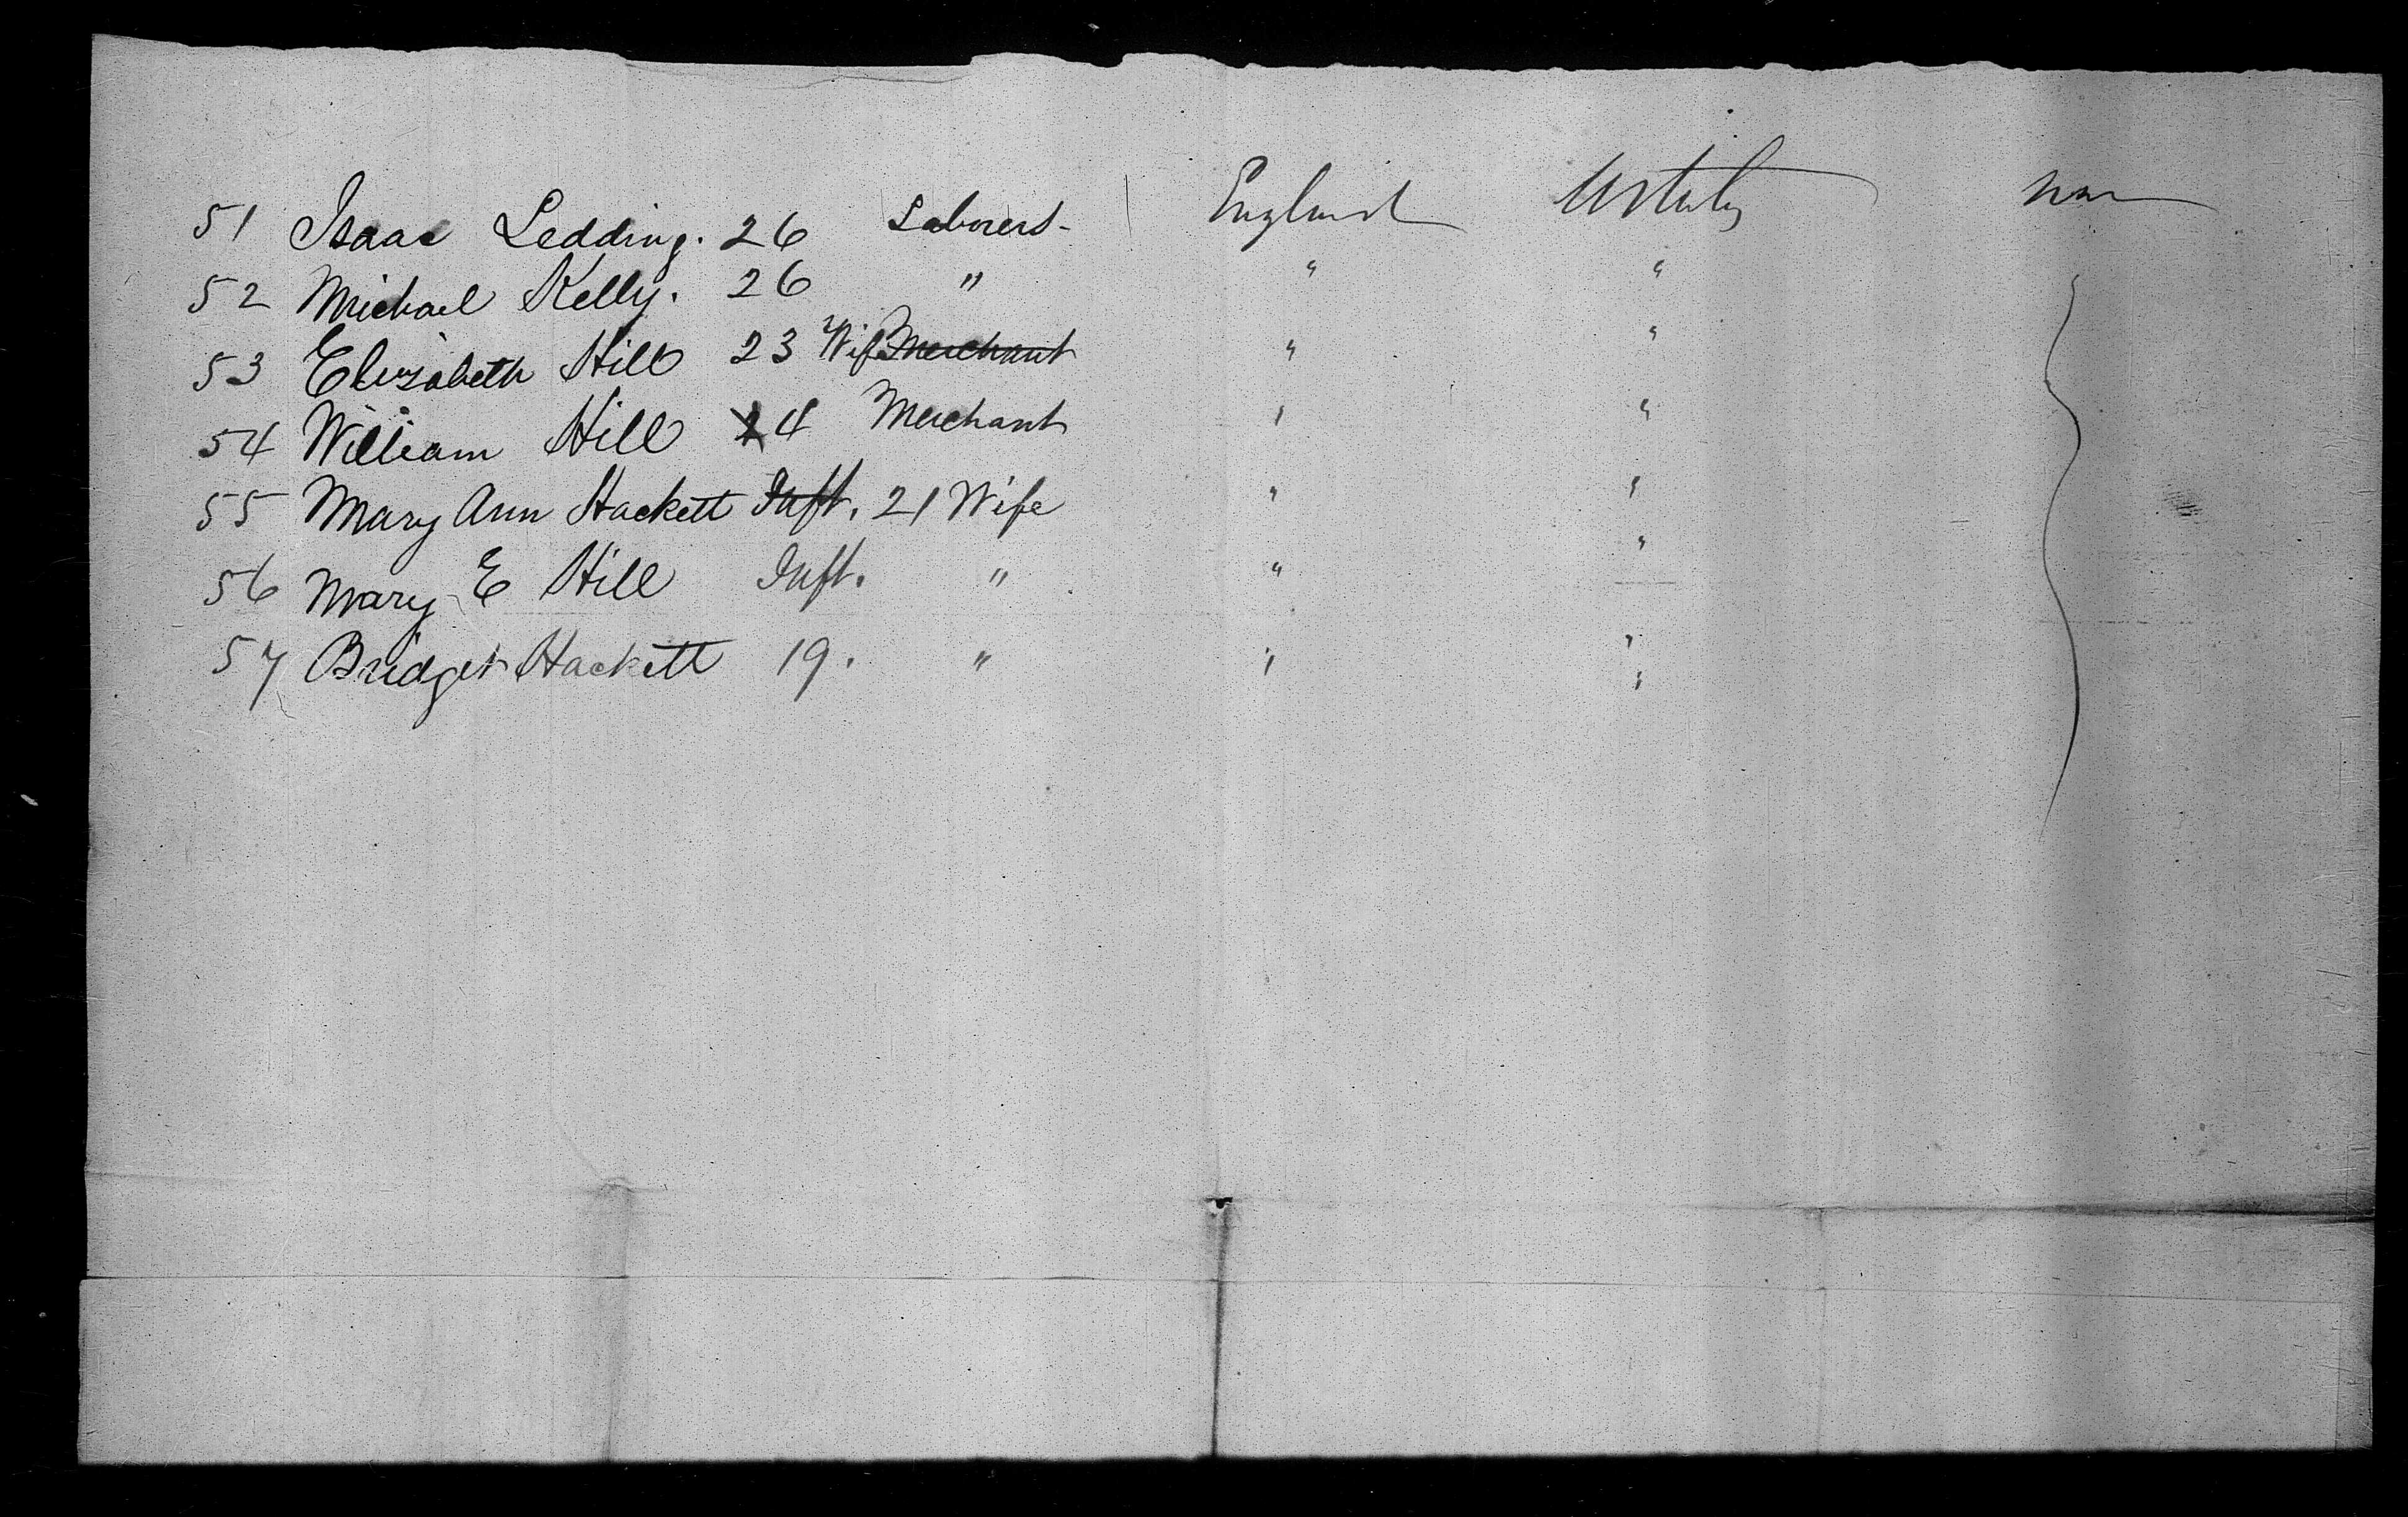 51 Isaac Ledding. 26 Laborers - England U States
52 Michael Kelly. 26 " " "
53 Elizabeth Hill 23 Wife Merchant " "
54 William Hill 24 Merchant " "
55 Mary Ann Hackett Inft. 21 Wife " "
56 Mary E Hill Inft. " " "
57 Bridget Hackett 19. " " "